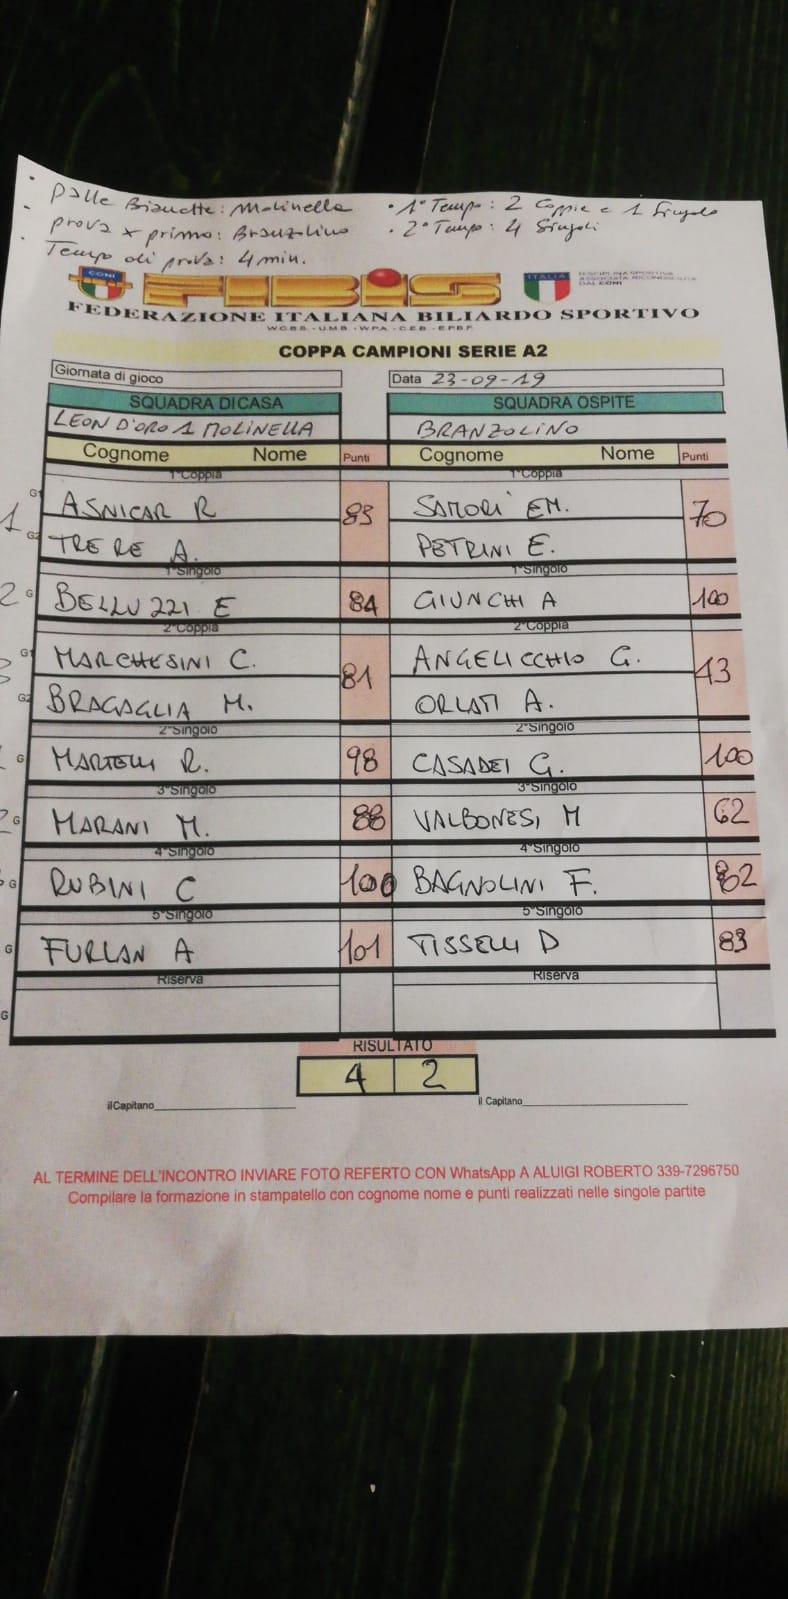 · Palle Bianche: Molinella
- prova x primo: Branzolino
· Tempo di prova: 4 min.
· 1° Tempo: 2 Coppie e 1 Singolo
· 2° Tempo: 4 Singoli
CONI FIBIS ITALIA DISCIPLINA SPORTIVA ASSOCIATA RICONOSCIUTA DAL CONI
FEDERAZIONE ITALIANA BILIARDO SPORTIVO
W.C.B.S. - U.M.B. - W.P.A. - C.E.B. - E.P.B.F.
COPPA CAMPIONI SERIE A2
Giornata di gioco Data 23-09-19
SQUADRA DI CASA SQUADRA OSPITE
LEON D'ORO 1 MOLINELLA BRANZOLINO
Cognome Nome Punti Cognome Nome Punti
1°Coppia 1°Coppia
1 G1 ASNICAR R 83 SAMORI' EM. 70
G2 TRERE A. PETRINI E.
1°Singolo 1°Singolo
2 G BELLUZZI E 84 GIUNCHI A 100
2°Coppia 2°Coppia
3 G1 MARCHESINI C. 81 ANGELICCHIO G. 43
G2 BRAGAGLIA M. ORLATI A.
2°Singolo 2°Singolo
G MARTELLI R. 98 CASADEI G. 100
3°Singolo 3°Singolo
G MARANI M. 88 VALBONESI M 62
4°Singolo 4°Singolo
G RUBINI C 100 BAGNOLINI F. 82
5°Singolo 5°Singolo
G FURLAN A 101 TISSELLI D 83
Riserva Riserva
G
RISULTATO
4 2
il Capitano il Capitano
AL TERMINE DELL'INCONTRO INVIARE FOTO REFERTO CON WhatsApp A ALUIGI ROBERTO 339-7296750
Compilare la formazione in stampatello con cognome nome e punti realizzati nelle singole partite